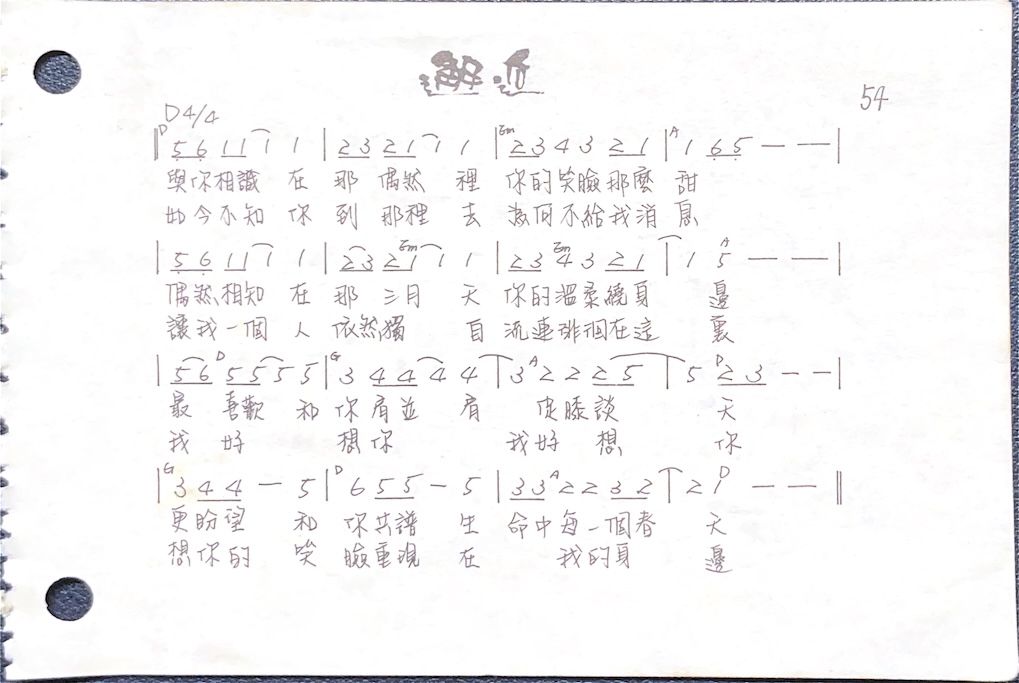 邂逅
54
D4/4
D 5 6 1 1 1 1 | 2 3 2 1 1 1 | Em 2 3 4 3 2 1 | A 1 6 5 — — |
與你相識 在 那 偶然 裡 你的笑臉那麼 甜
如今不知 你 到 那裡 去 為何不給我消 息
| 5 6 1 1 1 1 | 2 3 2 Em 1 1 1 | 2 3 Em 4 3 2 1 | 1 A 5 — — |
偶然相知 在 那 三月 天 你的溫柔繞身 邊
讓我一個 人 依然獨 自 流連徘徊在這 裏
| 5 6 D 5 5 5 5 | G 3 4 4 4 4 | 3 A 2 2 2 5 | 5 D 2 3 — — |
最 喜歡 和 你肩並 肩 促膝談 天
我 好 想 你 我好 想 你
| G 3 4 4 — 5 | D 6 5 5 — 5 | 3 3 A 2 2 3 2 | 2 D 1 — — ||
更盼望 和 你共譜 生 命中每一個春 天
想你的 笑 臉重現 在 我的身 邊